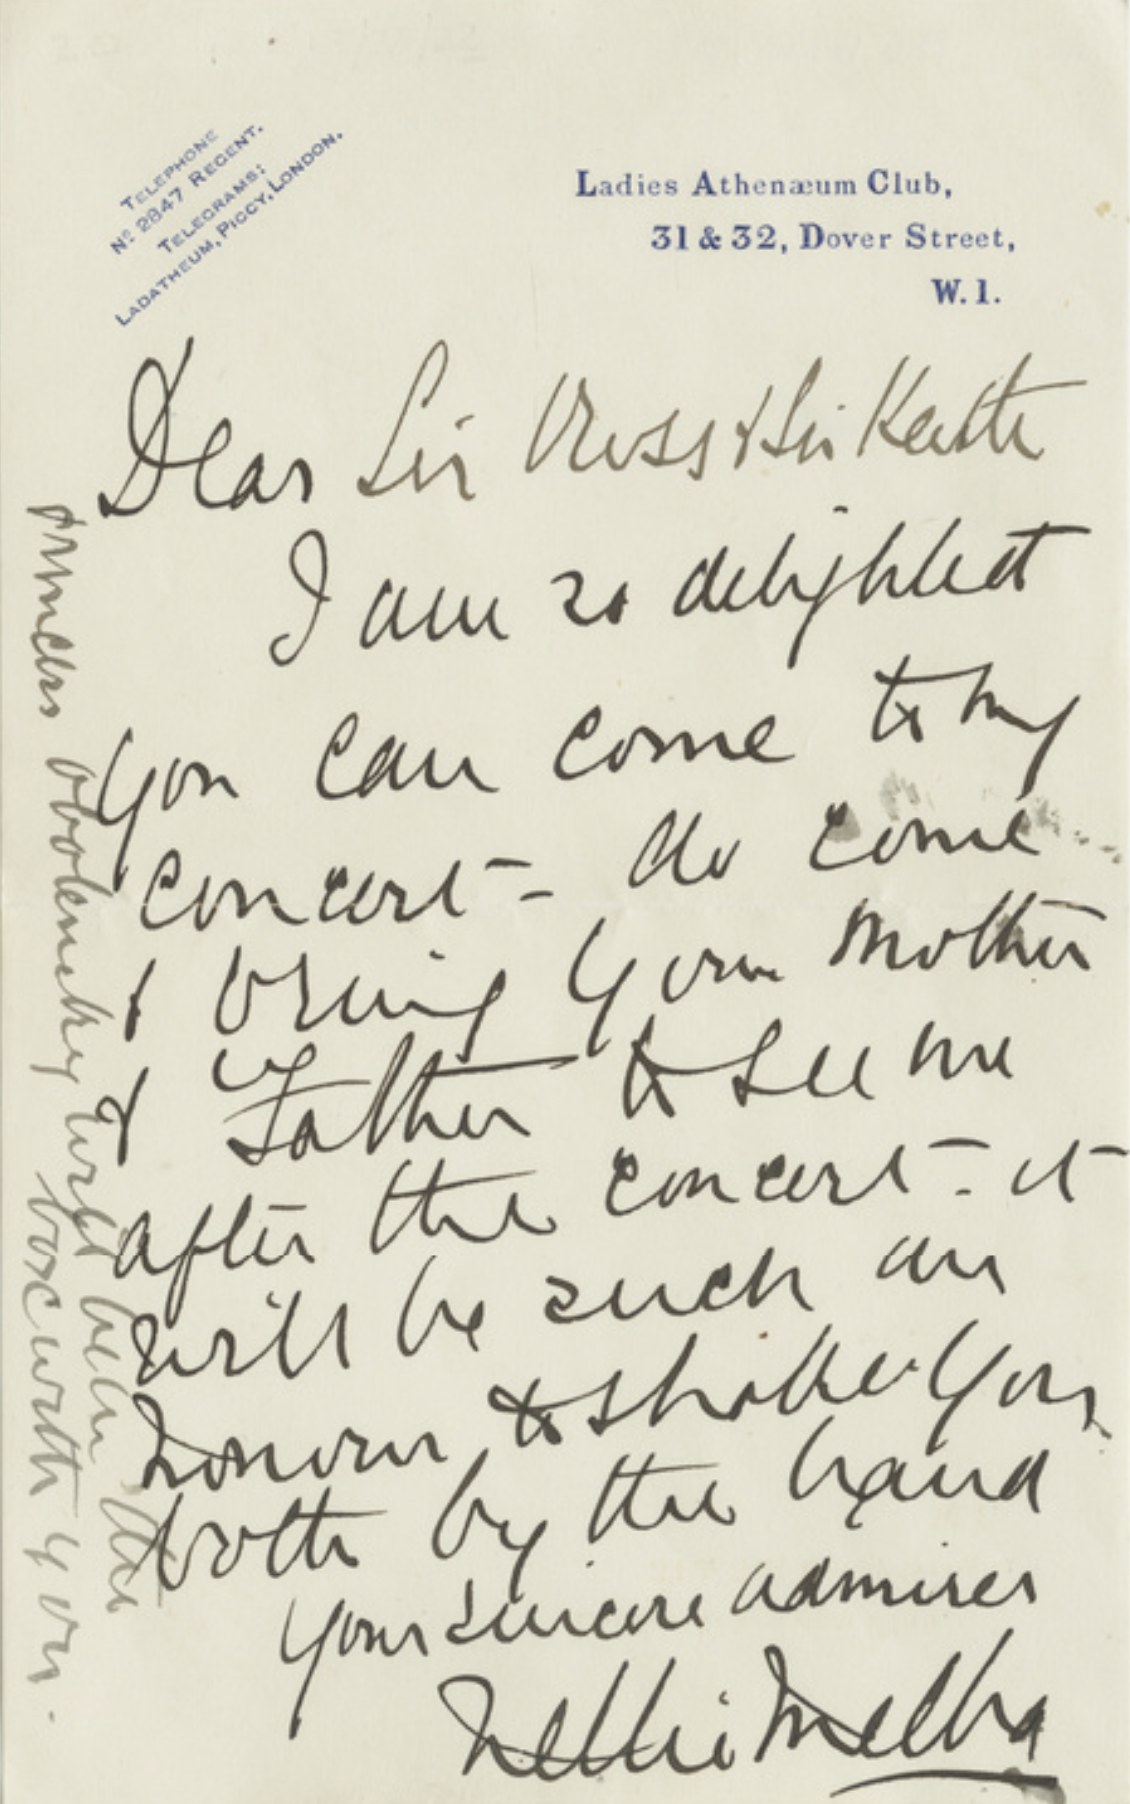 TELEPHONE
Nº 2847 REGENT.
TELEGRAMS:
LADATHEUM, PICCY, LONDON.
Ladies Athenæum Club,
31 & 32, Dover Street,
W. 1.
Dear Sir Ross & Sir Keith
I am so delighted
you can come to my
concert - do come
& bring your mother
& Father to see me
after the concert - it
will be such an
honour to shake you
both by the hand
Your sincere admirer
Nellie Melba
Princess Obolensky will be in the
box with you.